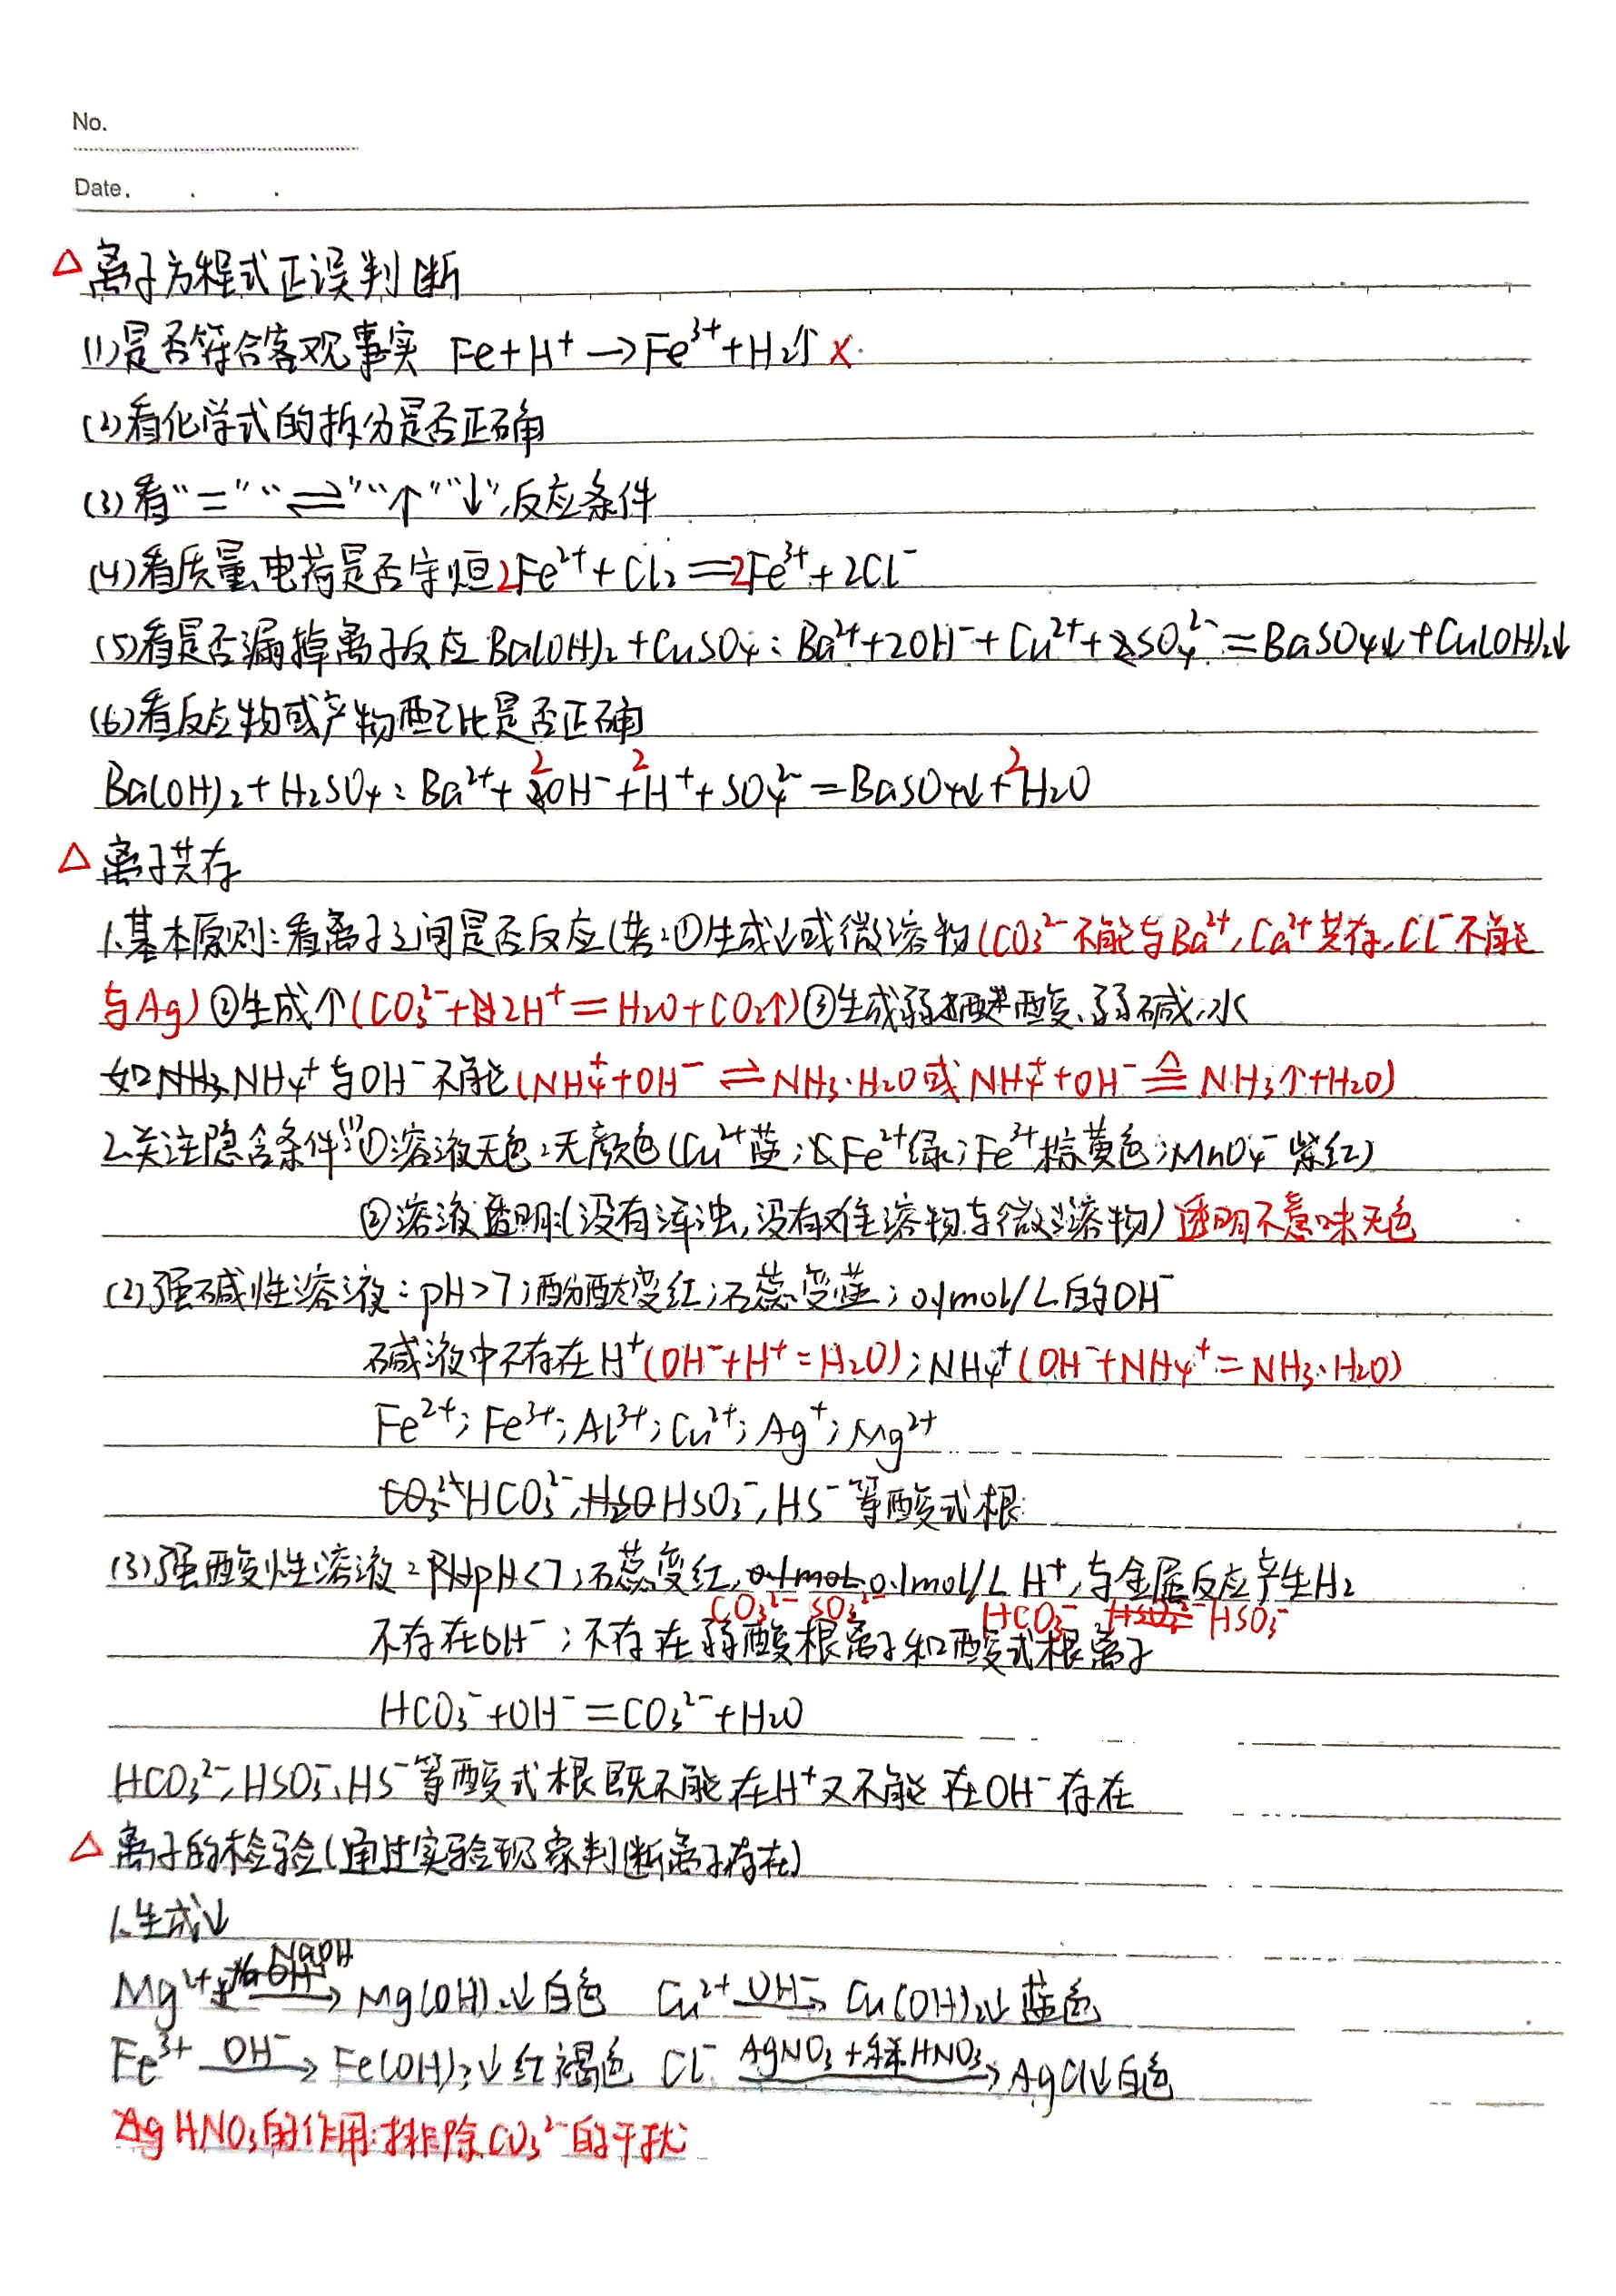 No.
Date. . .
△ 离子方程式正误判断
(1)是否符合客观事实 Fe+H⁺→Fe³⁺+H₂↑ ×
(2)看化学式的拆分是否正确
(3)看“=”“⇌”“↑”“↓”,反应条件
(4)看质量、电荷是否守恒 2Fe²⁺+Cl₂=2Fe³⁺+2Cl⁻
(5)看是否漏掉离子反应 Ba(OH)₂+CuSO₄:Ba²⁺+2OH⁻+Cu²⁺+SO₄²⁻=BaSO₄↓+Cu(OH)₂↓
(6)看反应物或产物配比是否正确
Ba(OH)₂+H₂SO₄:Ba²⁺+2OH⁻+2H⁺+SO₄²⁻=BaSO₄↓+2H₂O
△ 离子共存
1.基本原则:看离子之间是否反应(若:①生成↓或微溶物(CO₃²⁻不能与Ba²⁺,Ca²⁺共存,Cl⁻不能
与Ag)②生成↑(CO₃²⁻+2H⁺=H₂O+CO₂↑)③生成弱酸、弱碱、水
如NH₄⁺与OH⁻不能(NH₄⁺+OH⁻⇌NH₃·H₂O或NH₄⁺+OH⁻≜NH₃↑+H₂O)
2.关注隐含条件:(1)①溶液无色:无颜色(Cu²⁺蓝;Fe²⁺绿;Fe³⁺棕黄色;MnO₄⁻紫红)
②溶液透明:(没有浑浊,没有难溶物与微溶物)透明不意味无色
(2)强碱性溶液:pH>7;酚酞变红;石蕊变蓝;0.1mol/L的OH⁻
碱液中不存在H⁺(OH⁻+H⁺=H₂O);NH₄⁺(OH⁻+NH₄⁺=NH₃·H₂O)
Fe²⁺;Fe³⁺;Al³⁺;Cu²⁺;Ag⁺;Mg²⁺
HCO₃²⁻,HSO₃⁻,HS⁻等酸式根
(3)强酸性溶液:pH<7;石蕊变红,0.1mol/L H⁺,与金属反应产生H₂
CO₃²⁻ SO₃²⁻ HCO₃⁻ HSO₃⁻
不存在OH⁻;不存在弱酸根离子和酸式根离子
HCO₃⁻+OH⁻=CO₃²⁻+H₂O
HCO₃²⁻,HSO₃⁻、HS⁻等酸式根既不能在H⁺又不能在OH⁻存在
△ 离子的检验(通过实验现象判断离子存在)
1.生成↓
Mg²⁺ NaOH→ Mg(OH)₂↓白色 Cu²⁺ OH⁻→ Cu(OH)₂↓蓝色
Fe³⁺ OH⁻→ Fe(OH)₃↓红褐色 Cl⁻ AgNO₃+稀HNO₃→ AgCl↓白色
HNO₃的作用:排除CO₃²⁻的干扰